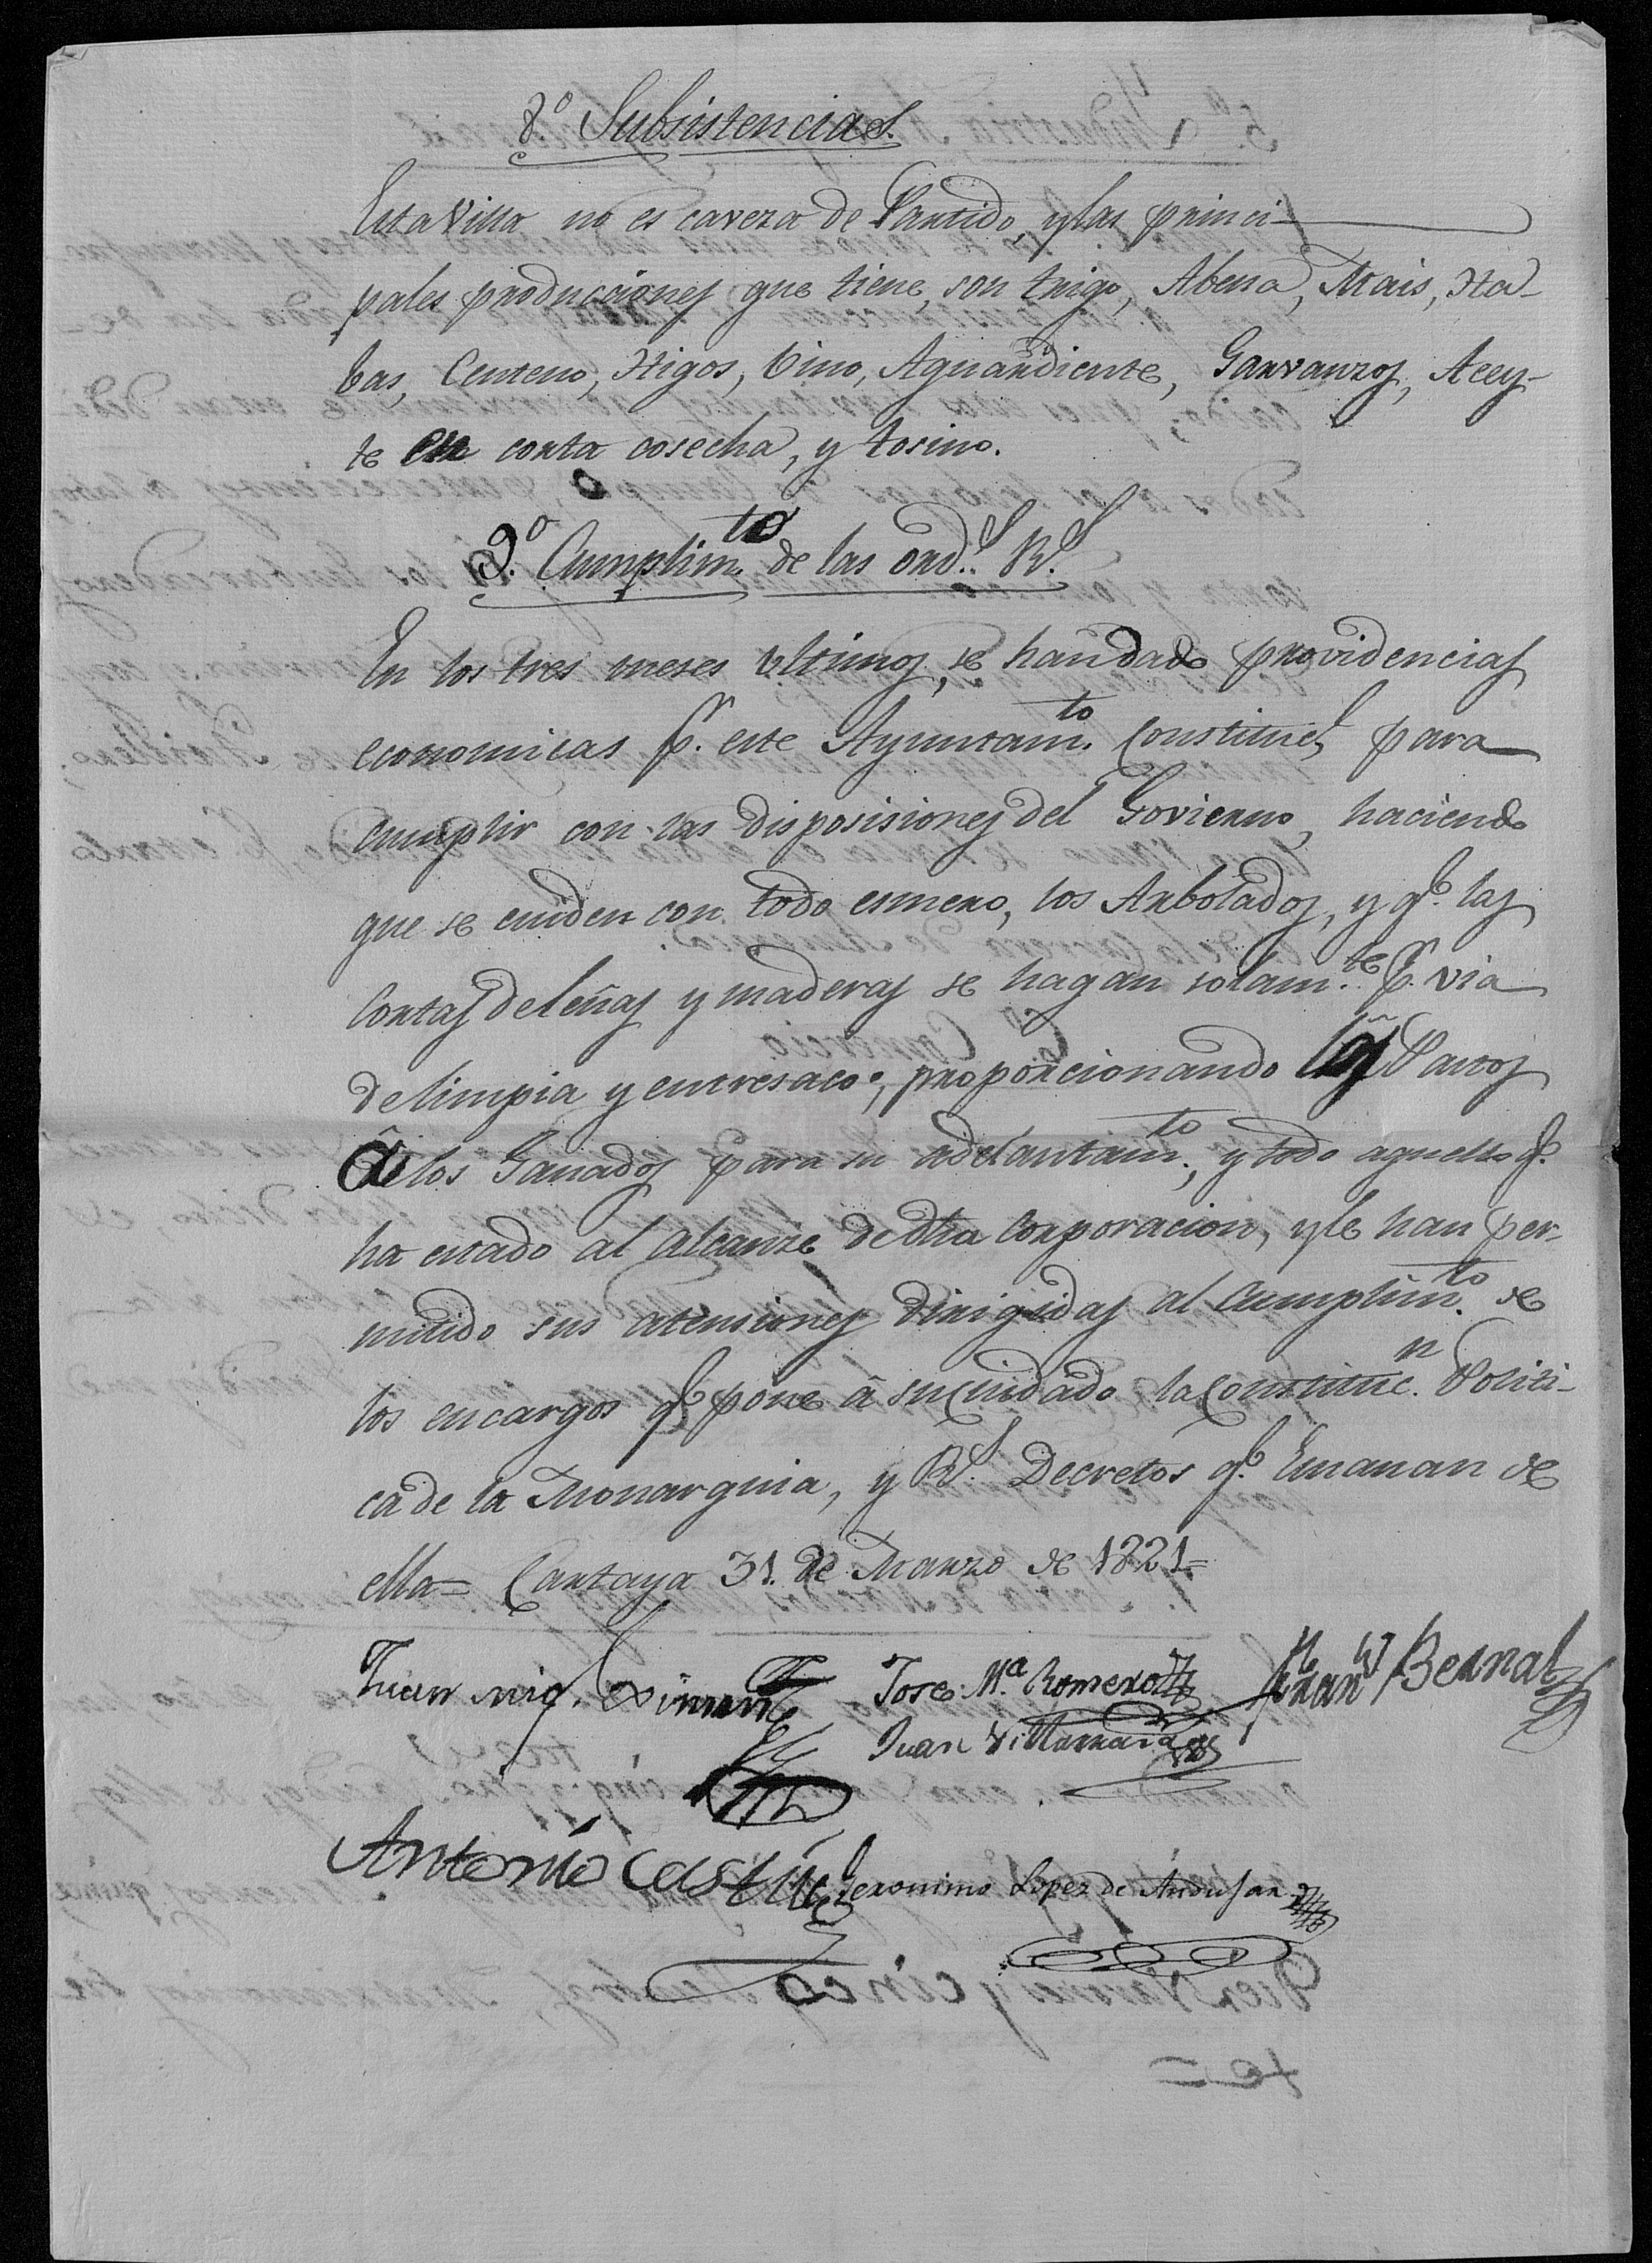 8.º Subsistencias.
Esta Villa no es caveza de Partido, y las princi-
pales producciones que tiene, son trigo, Abena, Mais, Ha-
bas, Centeno, Higos, bino, Aguardiente, Garvanzos, Acey-
te en corta cosecha, y tosino.
9.º Cumplim.to de las ord.s R.s
En los tres meses ultimos, se han dado providencias
economicas p.r este Ayuntam.to Constituc.l para
cumplir con las disposisiones del Govierno, haciendo
que se cuiden con todo esmero, los Arbolados, y q.e las
Cortas de leñas y maderas se hagan solam.te p.r via
de limpia y entresaco, proporcionando los Pastos
â los Ganados para su adelantam.to, y todo aquello q.e
ha estado al alcanze de dha Corporacion, y le han per-
mitido sus atensiones dirigidas al Cumplim.to de
los encargos q.e pone â su cuidado la Constituc.n Politi-
ca de la Monarquia, y R.s Decretos q.e Emanan de
ella= Cartaya 31. de Marzo de 1821=
Juan Mig.l
Jose M.a Romero
Fran.co Bernal
Juan Villarrasa
Antonio Castill
Geronimo Lopez de Andujar